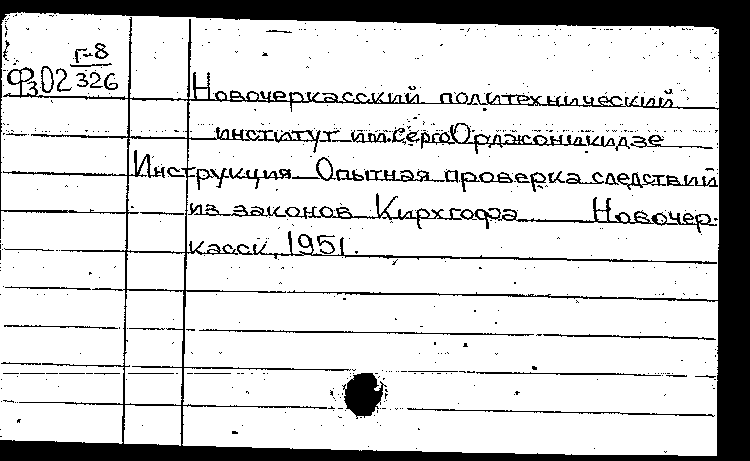 Г-8
Фз02 326
Новочеркасский политехнический
институт им.Серго Орджоникидзе
Инструкция Опытная проверка следствий
из законов Кирхгофа Новочер-
касск, 1951.